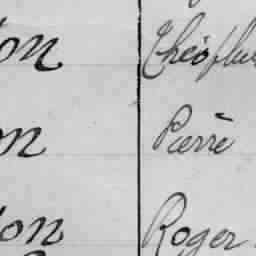 on Théophile
on Pierre
on Roger